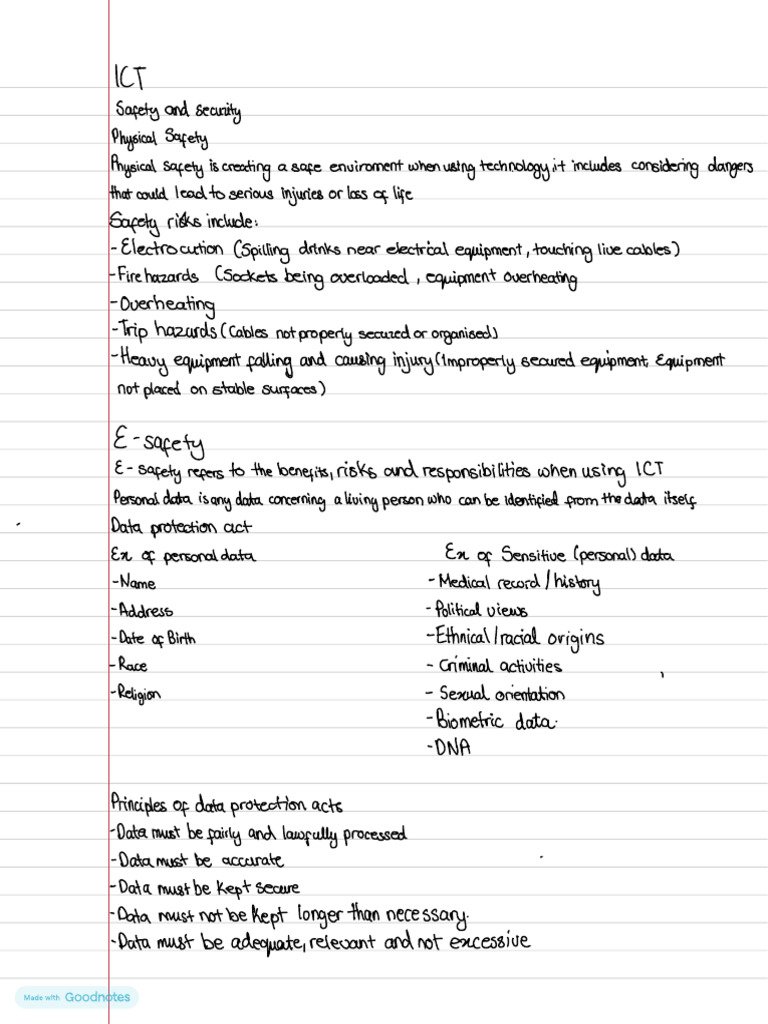 ICT
Safety and security
Physical Safety
Physical safety is creating a safe enviroment when using technology, it includes considering dangers
that could lead to serious injuries or loss of life
Safety risks include:
-Electrocution (Spilling drinks near electrical equipment, touching live cables)
-Fire hazards (Sockets being overloaded, equipment overheating
-Overheating
-Trip hazards (Cables not properly secured or organised)
-Heavy equipment falling and causing injury (Improperly secured equipment, Equipment
not placed on stable surfaces)
E-safety
E-safety refers to the benefits, risks and responsibilities when using ICT
Personal data is any data concerning a living person who can be identified from the data itself
Data protection act
Ex of personal data
-Name
-Address
-Date of Birth
-Race
-Religion
Ex of Sensitive (personal) data
-Medical record/history
-Political views
-Ethnical/racial origins
-Criminal activities
-Sexual orientation
-Biometric data.
-DNA
Principles of data protection acts
-Data must be fairly and lawfully processed
-Data must be accurate
-Data must be kept secure
-Data must not be kept longer than necessary.
-Data must be adequate, relevant and not excessive
Made with Goodnotes